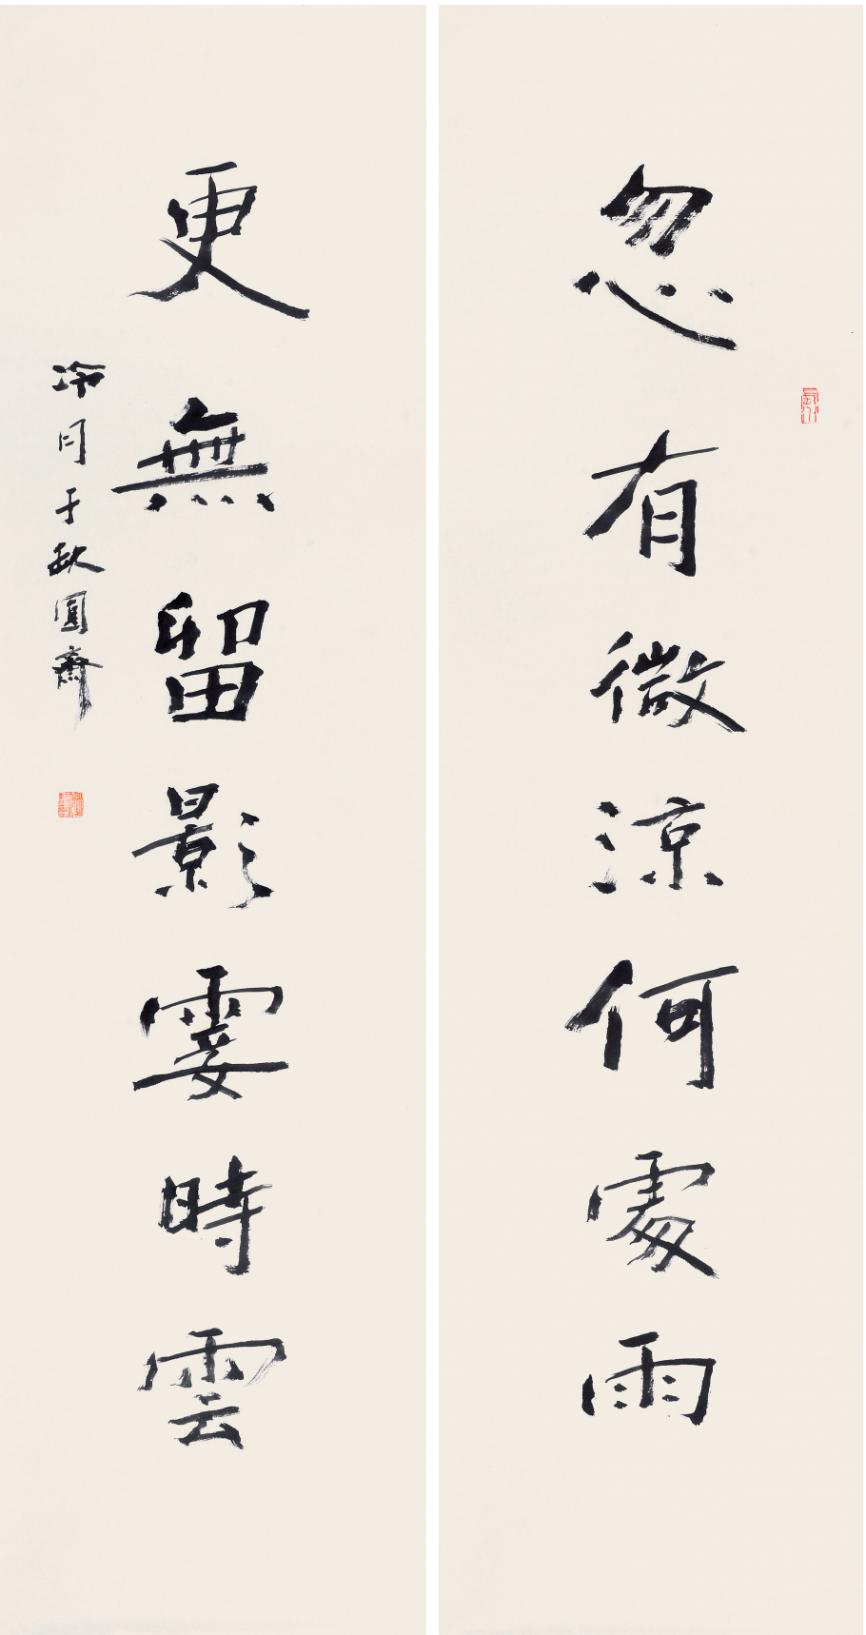 忽有微涼何處雨
更無留影霎時雲
于秋圓齋